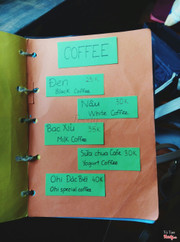 COFFEE
Đen 25K
Black Coffee
Nâu 30K
White Coffee
Bạc Xỉu 35K
Milk Coffee
Sữa chua Cafe 30K
Yogurt Coffee
Ohi Đặc Biệt 40K
Ohi special coffee